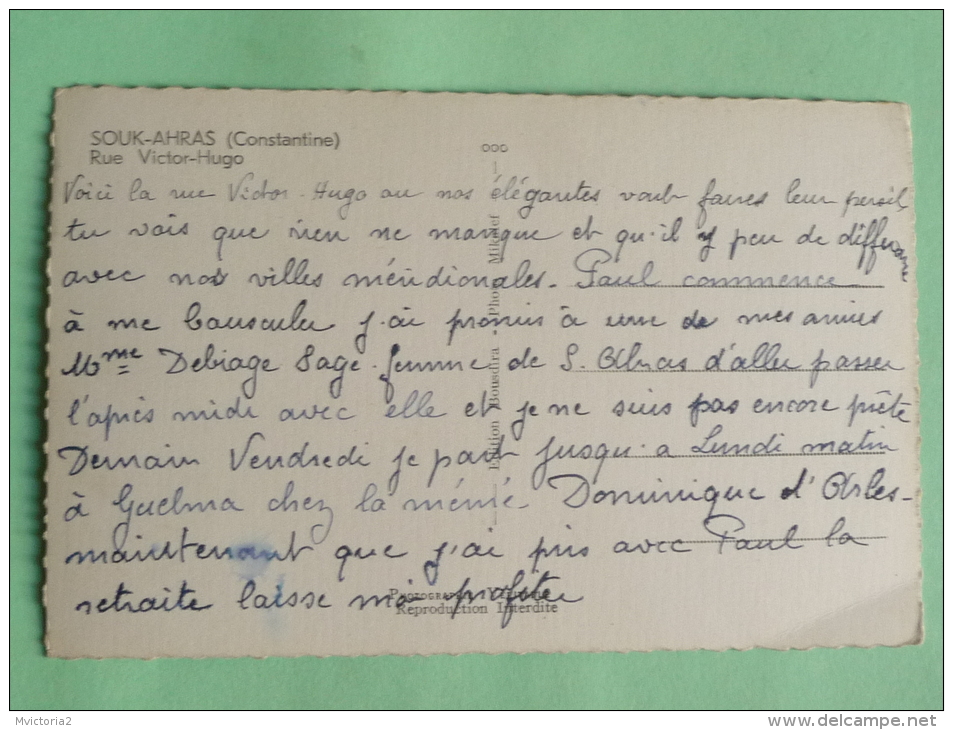 SOUK-AHRAS (Constantine)
Rue Victor-Hugo
Voici la rue Victor-Hugo ou nos élégantes vont faires leur persil,
tu vois que rien ne manque et qu'il y peu de différence
avec nos villes méridionales. Paul commence
à me bousculer j'ai promis à une de mes amies
Mme Debiage Sage-femme de S. Ahras d'aller passer
l'après midi avec elle et je ne suis pas encore prête
Demain Vendredi je part jusqu'a Lundi matin
à Guelma chez la mémé Dominique d'Arles-
maintenant que j'ai pris avec Paul la
retraite laisse moi profiter
Edition Bousdira - Photo
Reproduction Interdite
Mvictoria2
www.delcampe.net